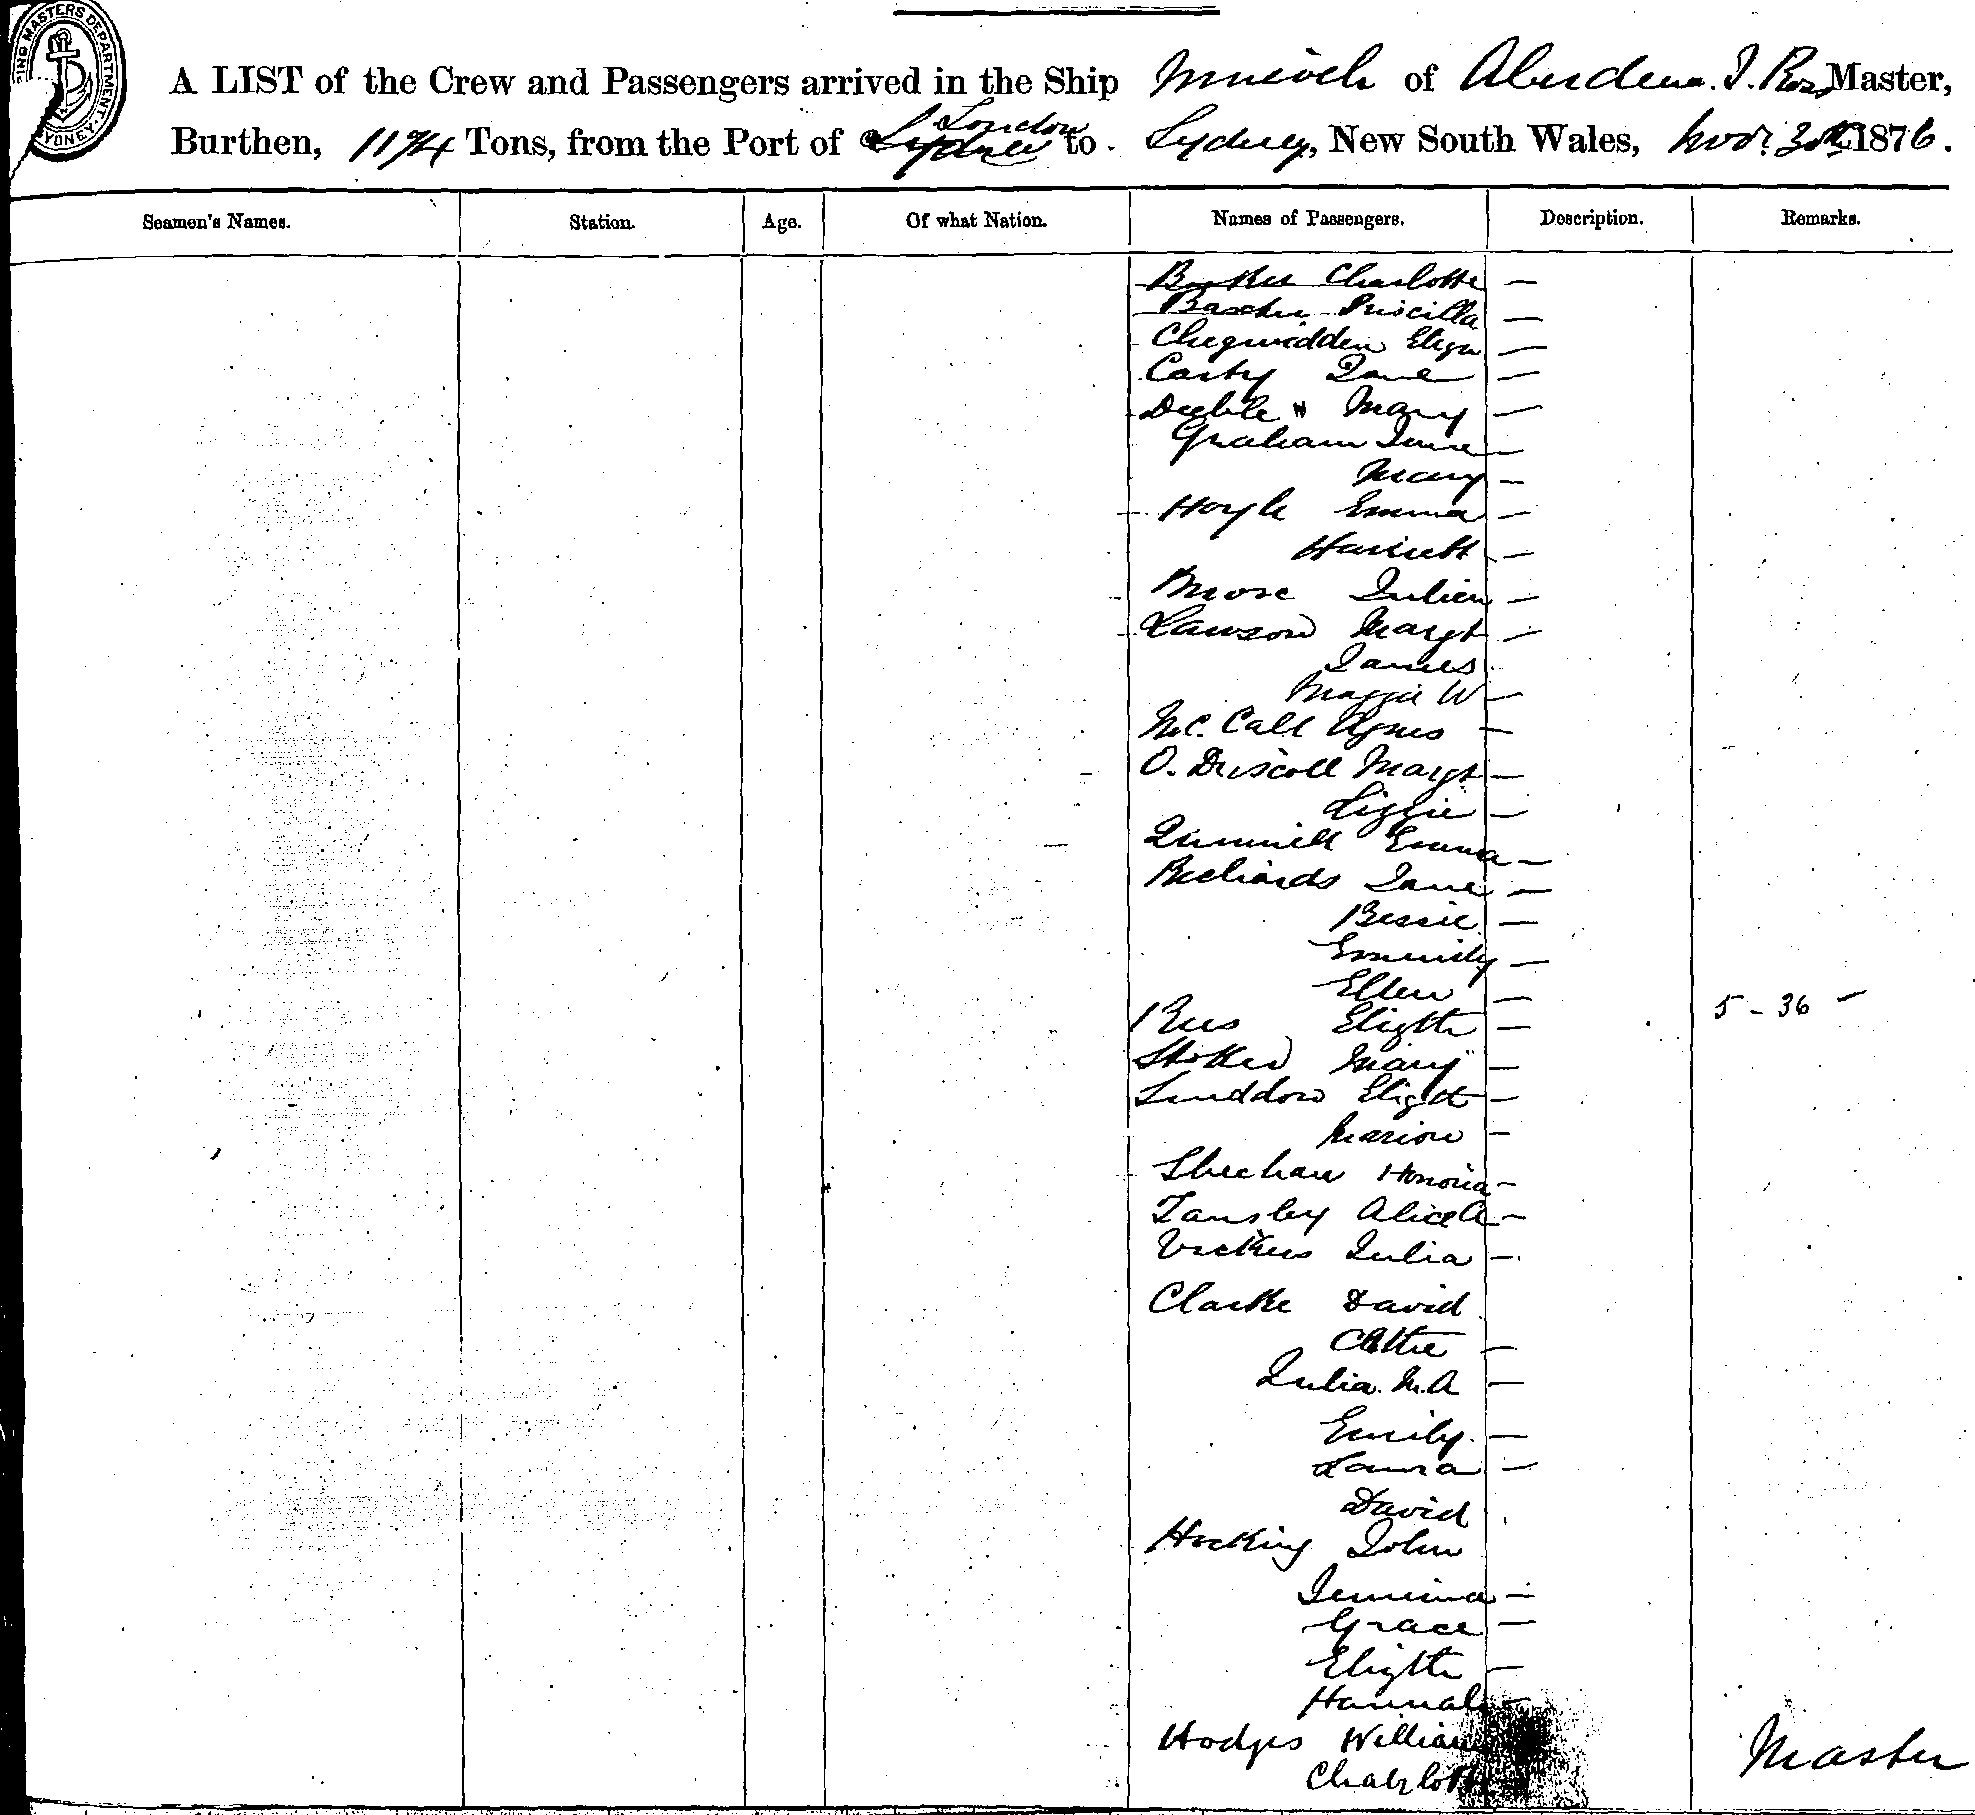 A LIST of the Crew and Passengers arrived in the Ship of Aberdeen. J. Ross Master,
Burthen, Tons, from the Port of London to Sydney, New South Wales, Novr. 30th 1876.
Seamen's Names. Station. Age. Of what Nation. Names of Passengers. Description. Remarks.
Charlotte —
Priscilla —
Chegwidden Eliza —
Jane —
Deeble Mary —
Graham Jane —
Mary —
Hoyle Emma —
Harriett —
Julien —
Lawson Margt —
James
Maggie W —
Mc. Call Agnes —
O. Driscoll Margt —
Lizzie —
Emma —
Richards Jane —
Bessie —
Emmily —
Ellen — 5 - 36 —
Rees Elizth —
Stokes Mary —
Elizth —
Marion —
Sheehan Honoria —
Tansley Alice A —
Vickers Julia —
Clarke David
—
Julia. M. A —
Emily. —
Laura —
David
Hocking John
Jemima —
Grace —
Elizth —
Hannah —
Hodges William
Charlotte
Master